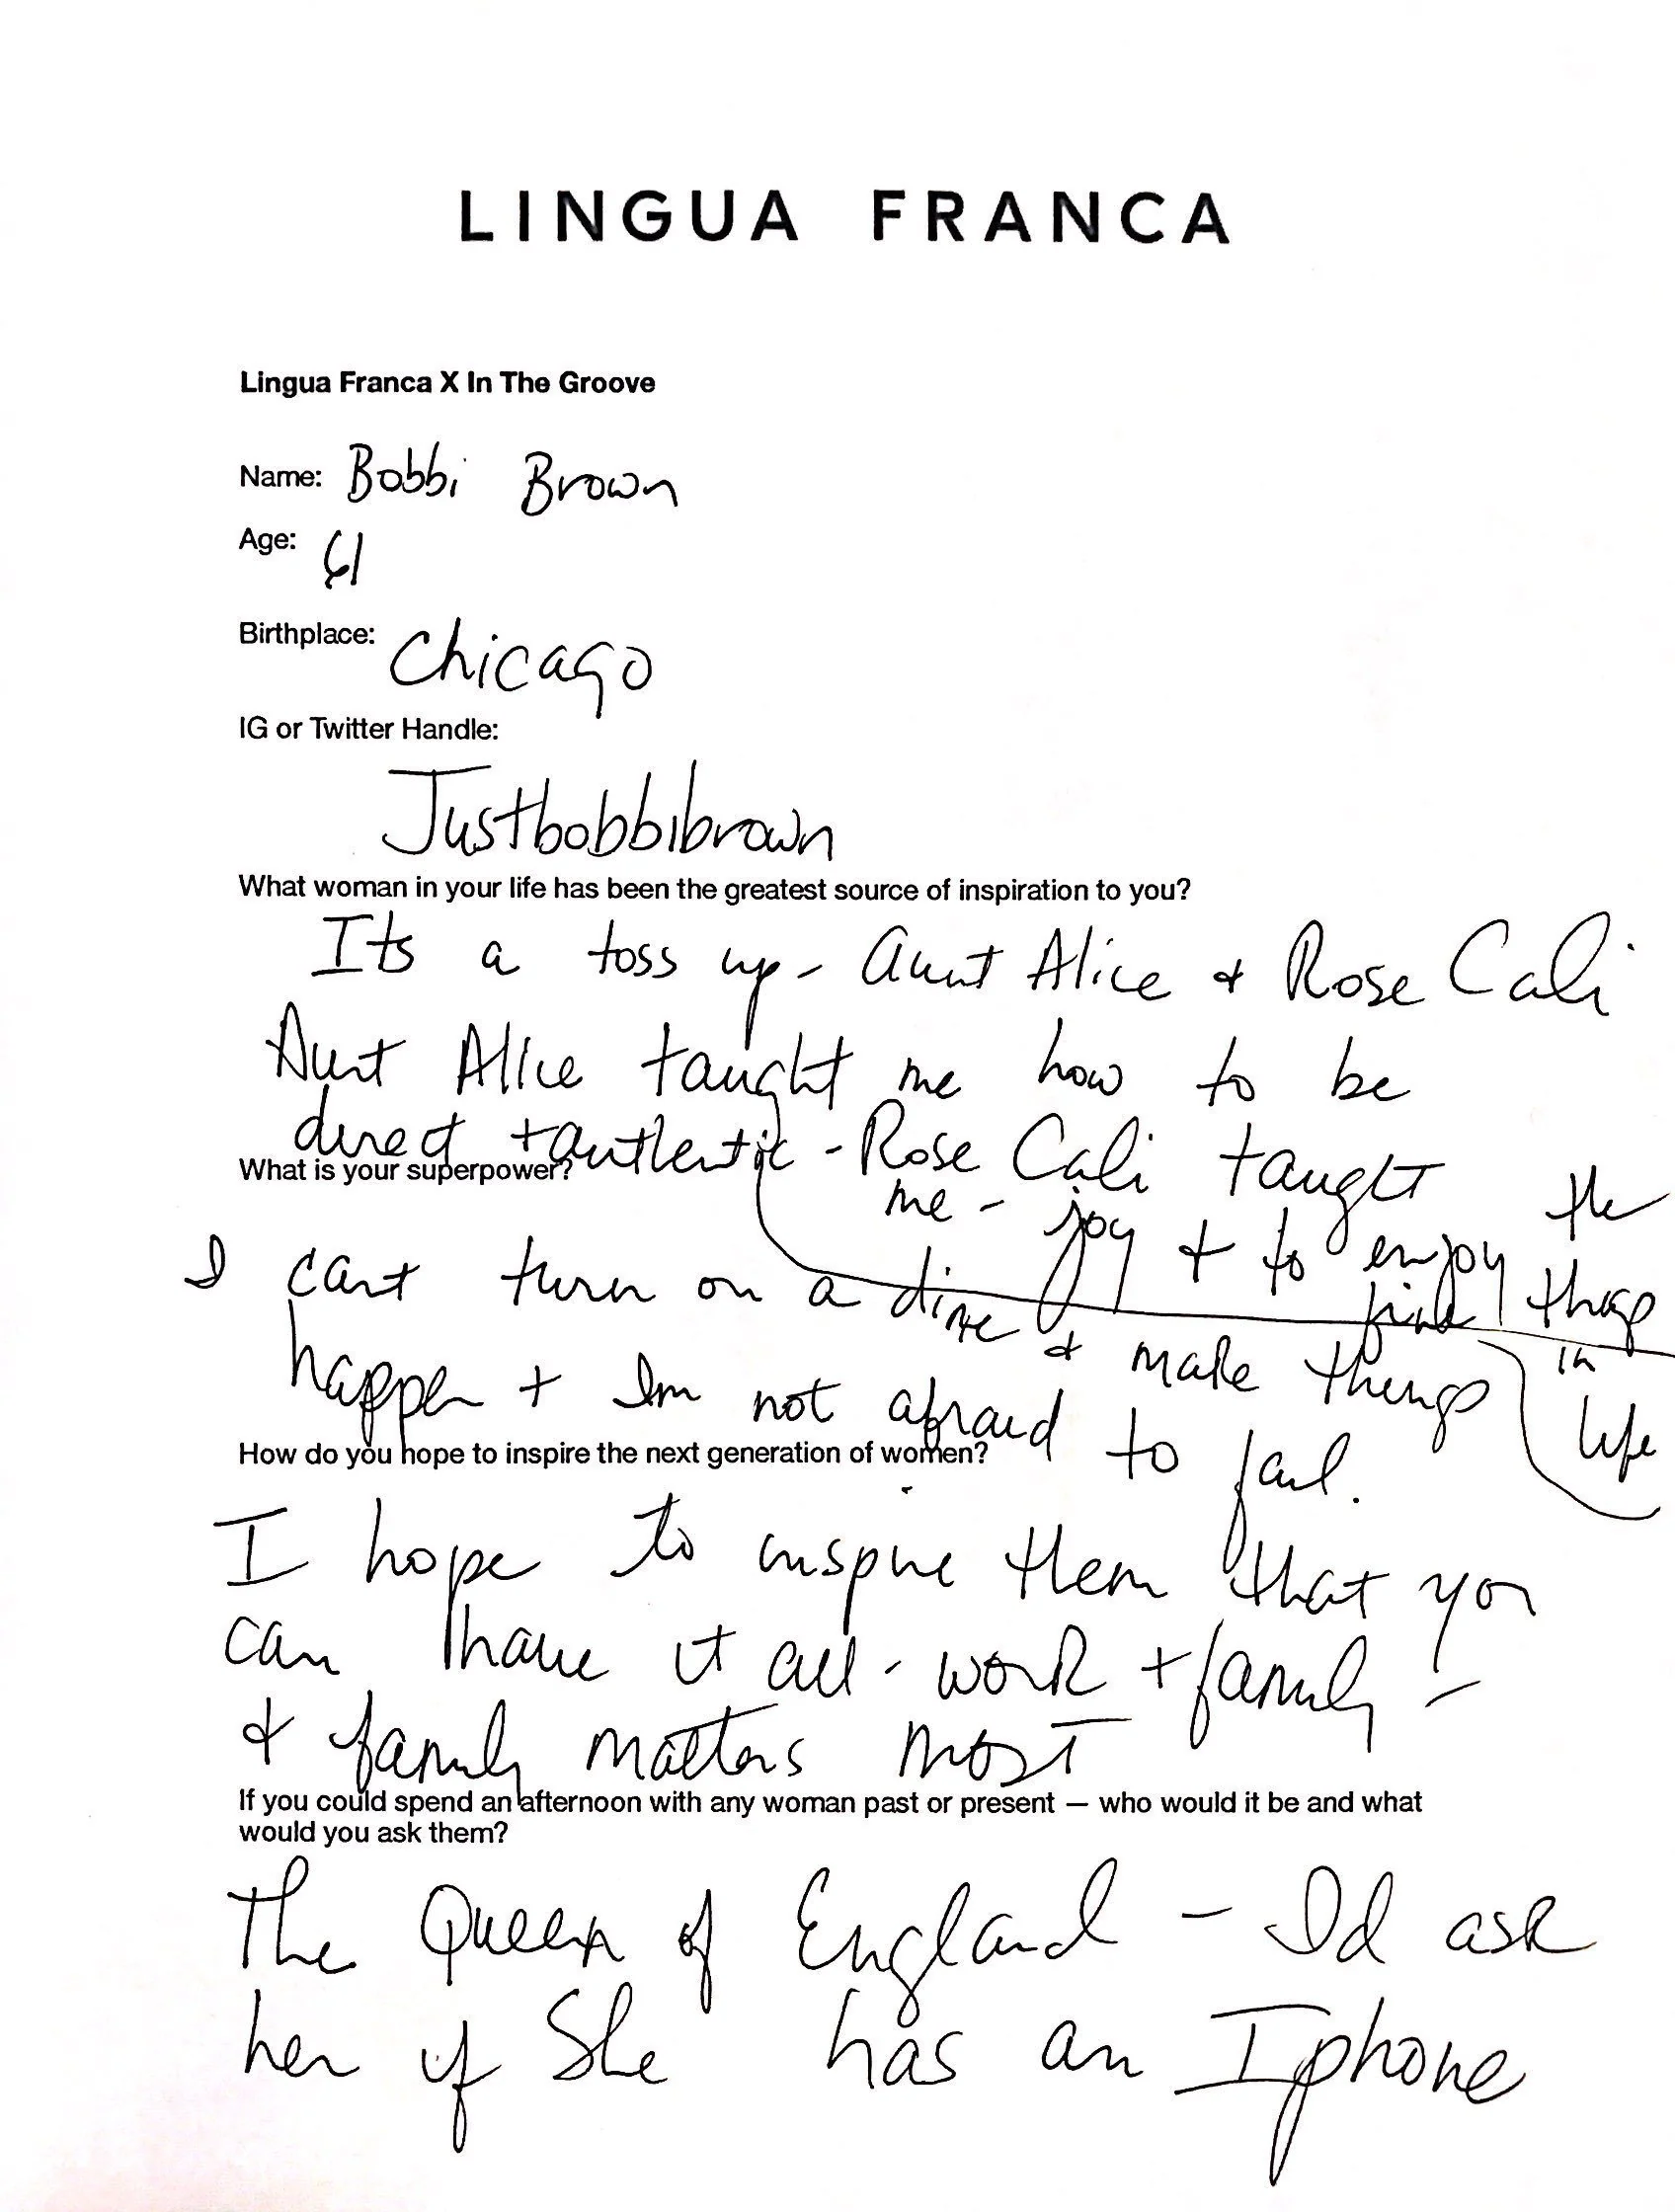 LINGUA FRANCA
Lingua Franca X In The Groove
Name: Bobbi Brown
Age: 61
Birthplace: Chicago
IG or Twitter Handle:
Justbobbibrown
What woman in your life has been the greatest source of inspiration to you?
Its a toss up - Aunt Alice + Rose Cali
Aunt Alice taught me how to be
direct + authentic - Rose Cali taught
me - joy + to enjoy the
things
in
life
What is your superpower?
I can turn on a dime + make things
happen + Im not afraid to fail.
How do you hope to inspire the next generation of women?
I hope to inspire them that you
can have it all - work + family -
+ family matters most
If you could spend an afternoon with any woman past or present — who would it be and what
would you ask them?
The Queen of England - Id ask
her if She has an Iphone